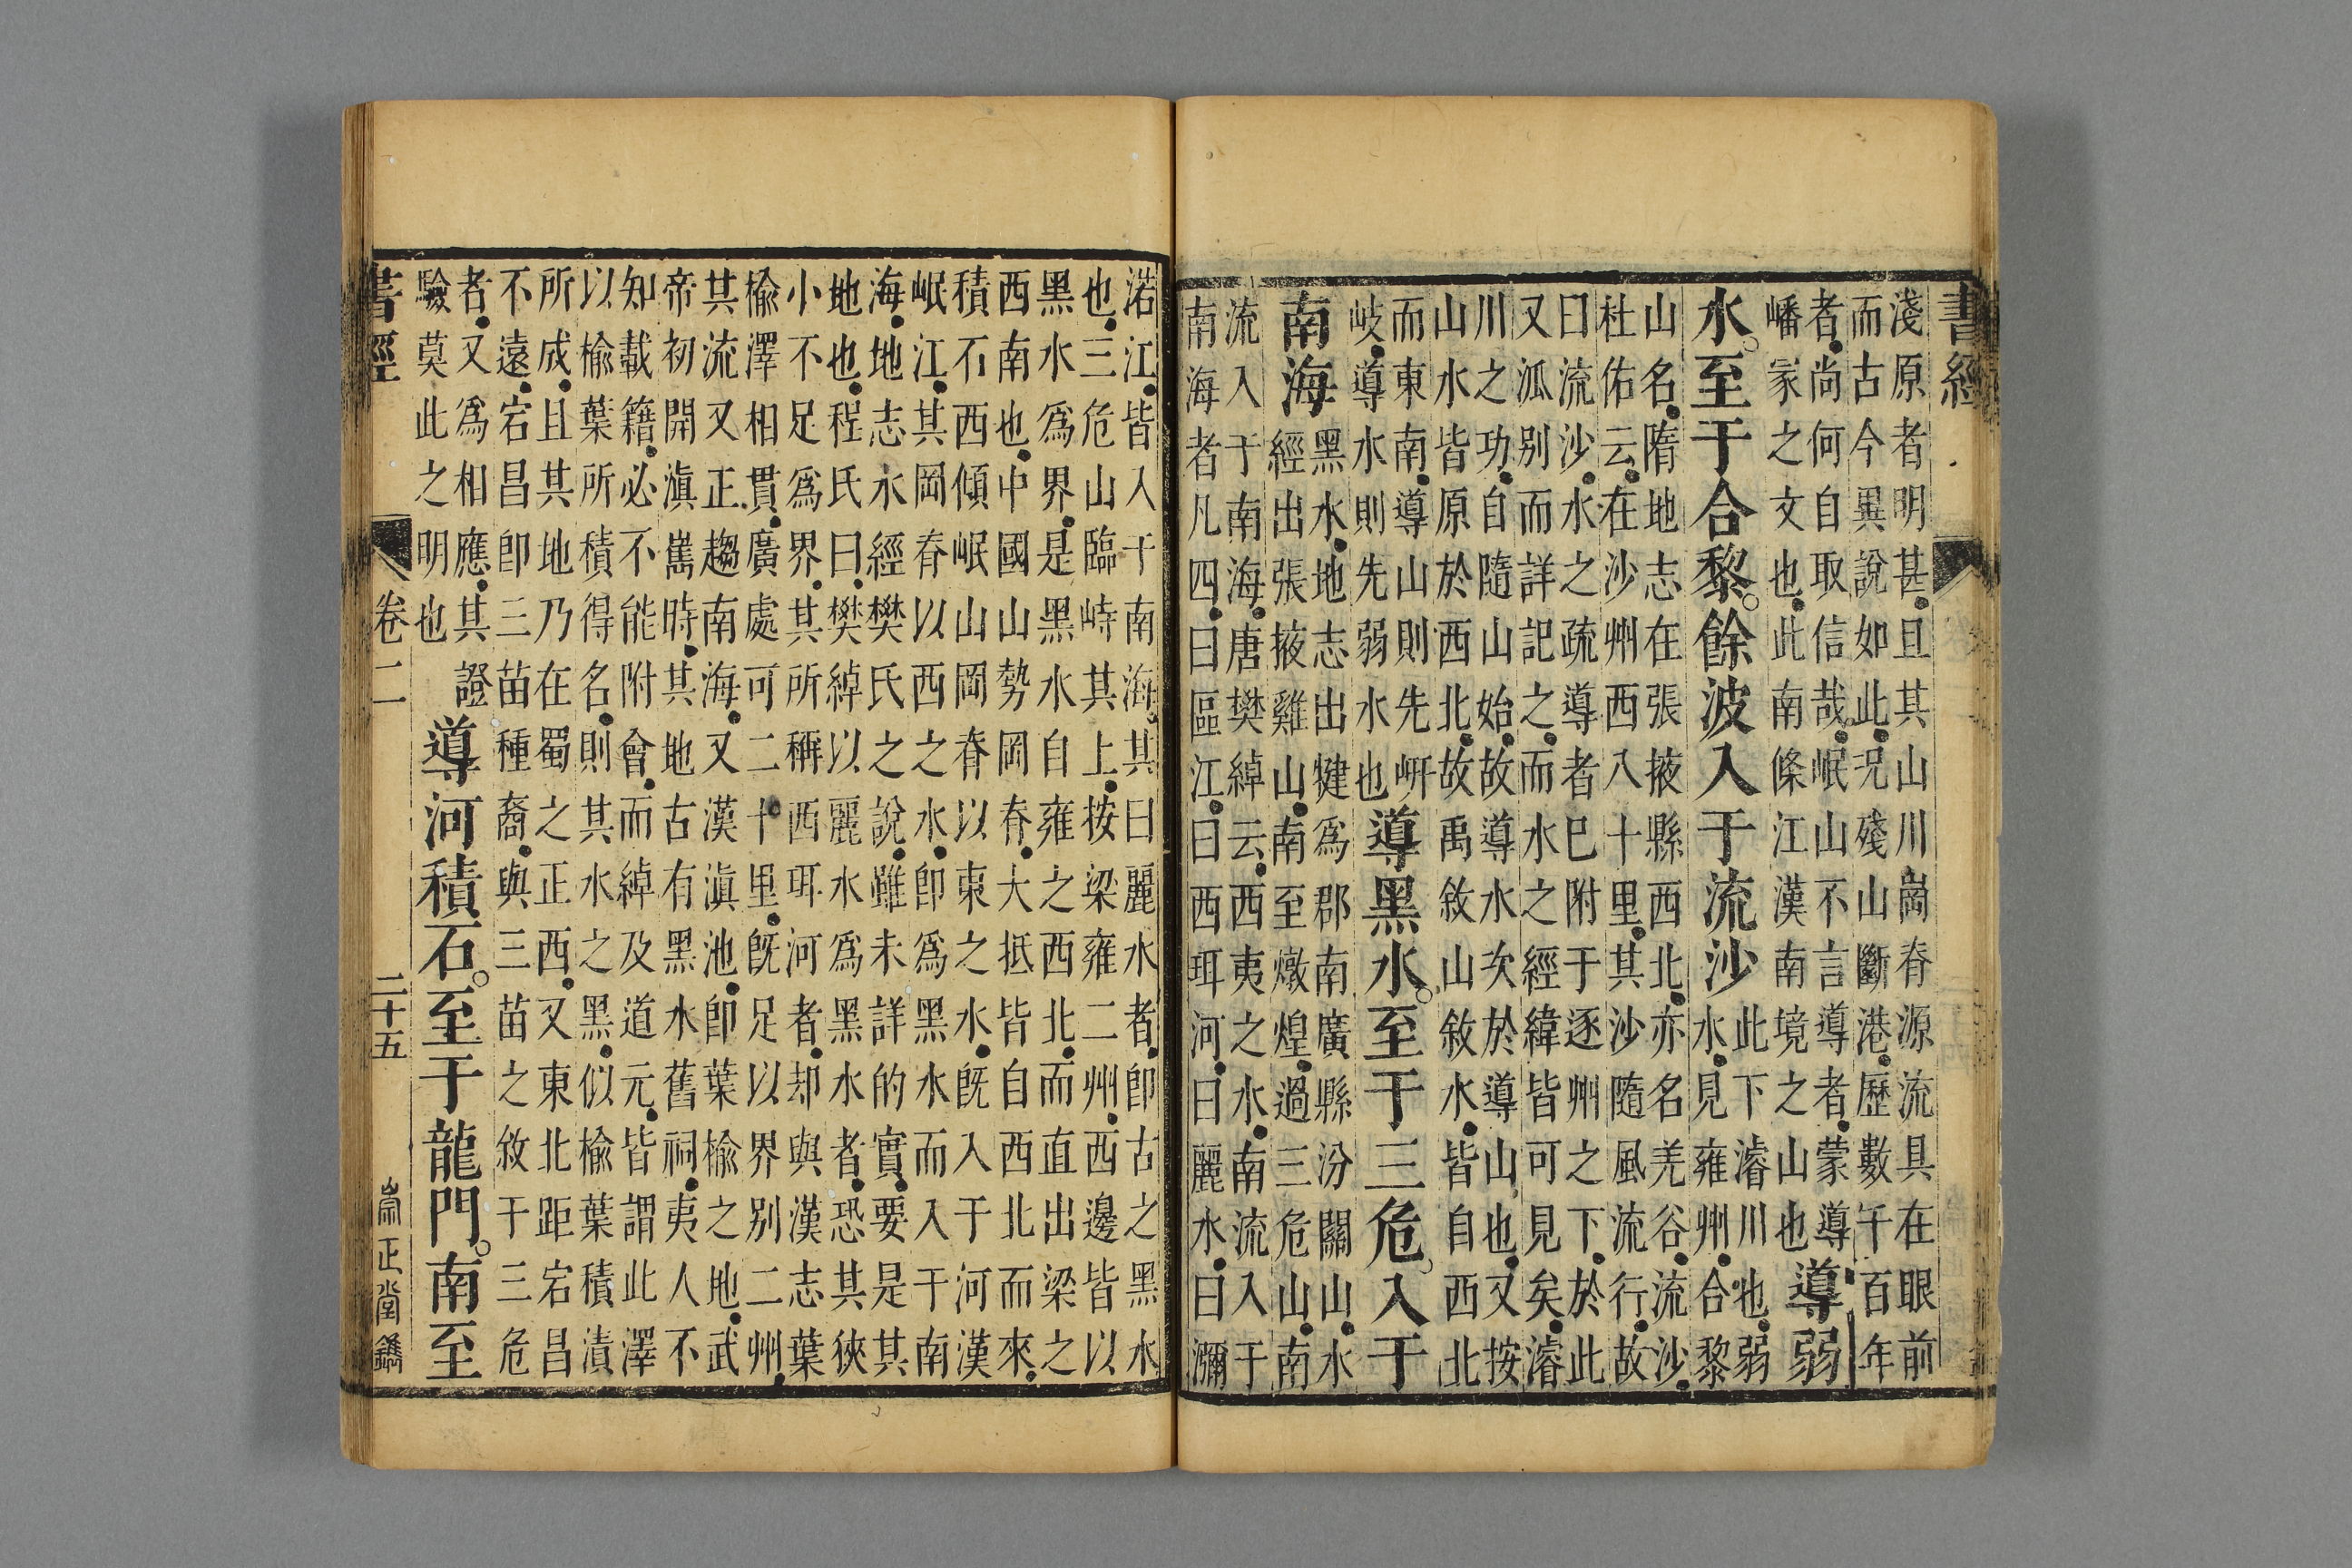 書經
淺原者明甚且其山川崗脊源流具在眼前
而古今異說如此況殘山斷港歷數千百年
者尚何自取信哉岷山不言導者蒙導
嶓冢之文也此南條江漢南境之山也
導弱
水至于合黎餘波入于流沙
此下濬川也弱
水見雍州合黎
山名隋地志在張掖縣西北亦名羌谷流沙
杜佑云在沙州西八十里其沙隨風流行故
曰流沙水之疏導者已附于逐州之下於此
又派別而詳記之而水之經緯皆可見矣濬
川之功自隨山始故導水次於導山也又按
山水皆原於西北故禹敘山敘水皆自西北
而東南導山則先岍
岐導水則先弱水也
導黑水至于三危入于
南海
黑水地志出犍為郡南廣縣汾關山水
經出張掖雞山南至燉煌過三危山南
流入于南海唐樊綽云西夷之水南流入于
南海者凡四曰區江曰西珥河曰麗水曰瀰
渃江皆入于南海其曰麗水者即古之黑水
也三危山臨峙其上按梁雍二州西邊皆以
黑水為界是黑水自雍之西北而直出梁之
西南也中國山勢岡脊大抵皆自西北而來
積石西傾岷山岡脊以東之水既入于河漢
岷江其岡脊以西之水即為黑水而入于南
海地志水經樊氏之說雖未詳的實要是其
地也程氏曰樊綽以麗水為黑水者恐其狹
小不足為界其所稱西珥河者却與漢志葉
榆澤相貫廣處可二十里既足以界別二州
其流又正趨南海又漢滇池即葉榆之地武
帝初開滇嶲時其地古有黑水舊祠夷人不
知載籍必不能附會而綽及道元皆謂此澤
以榆葉所積得名則其水之黑似榆葉積漬
所成且其地乃在蜀之正西又東北距宕昌
不遠宕昌即三苗種裔與三苗之敘于三危
者又為相應其證
驗莫此之明也
導河積石至于龍門南至
書經
卷二
二十五
崇正堂鐫